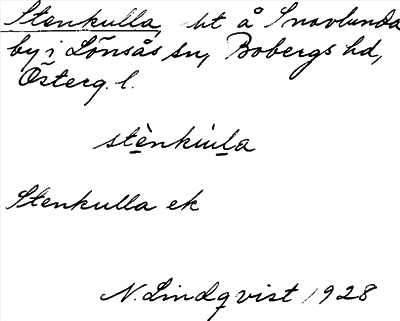 Stenkulla, bt å Snavlunda
by i Lönsås sn, Bobergs hd,
Österg. l.
stènkùla
Stenkulla ek
N. Lindqvist 1928